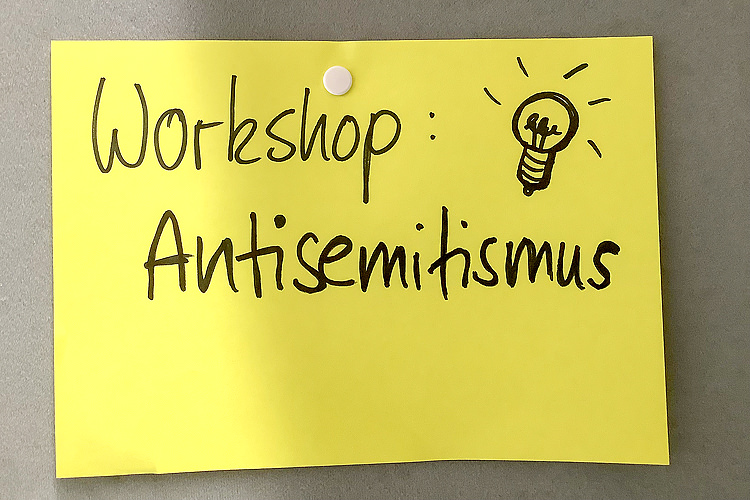 Workshop:
Antisemitismus